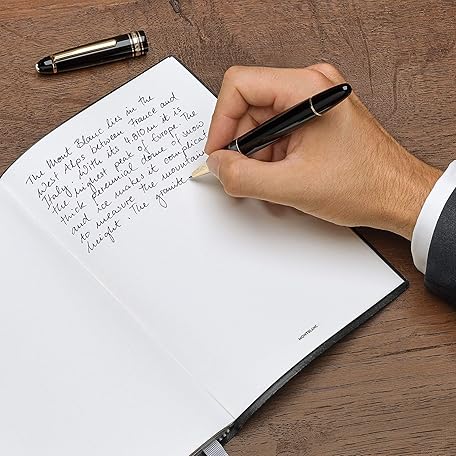 The Mont Blanc lies in the
West Alps between France and
Italy. With its 4,810 m it is
the highest peak of Europe. The
thick perennial dome of snow
and ice makes it complicat
to measure the mountain
height. The granite
MONTBLANC